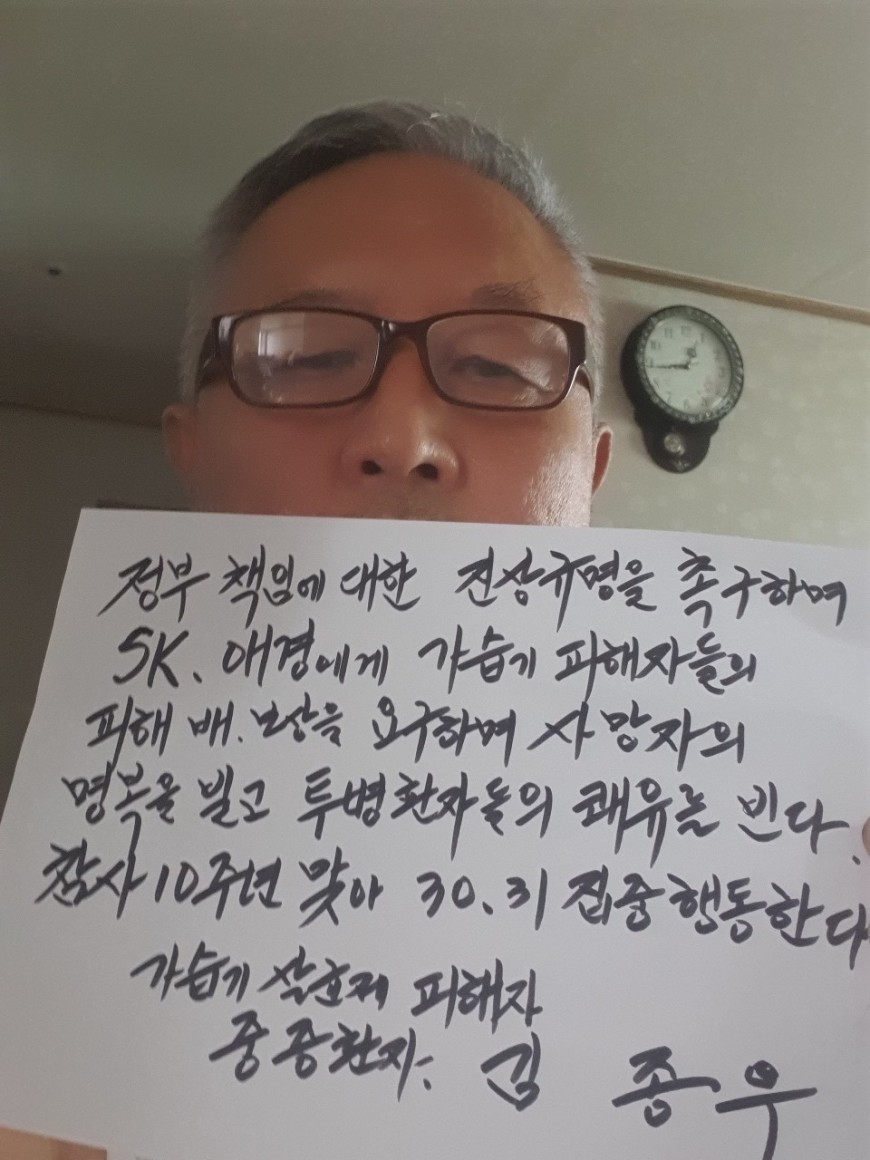 정부 책임에 대한 진상규명을 촉구하며
SK. 애경에게 가습기 피해자들의
피해 배.보상을 요구하며 사망자의
명복을 빌고 투병환자들의 쾌유를 빈다.
참사 10주년 맞아 30.31 집중행동한다
가습기 살균제 피해자
중증환자: 김 종우